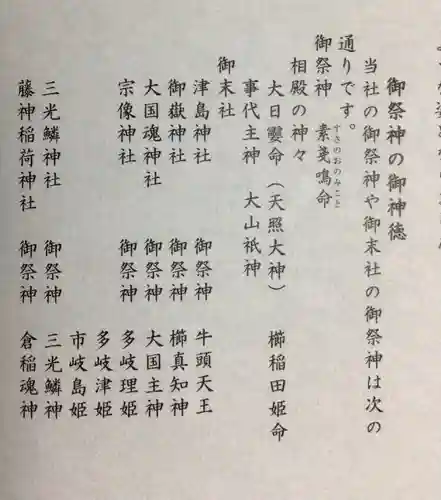 御祭神の御神徳
当社の御祭神や御末社の御祭神は次の
通りです。
御祭神 素戔鳴命
すさのおのみこと
相殿の神々
大日孁命（天照大神） 櫛稲田姫命
事代主神 大山祇神
御末社
津島神社 御祭神 牛頭天王
御嶽神社 御祭神 櫛真知神
大国魂神社 御祭神 大国主神
宗像神社 御祭神 多岐理姫
多岐津姫
市岐島姫
三光鱗神社 御祭神 三光鱗神
藤神稲荷神社 御祭神 倉稲魂神